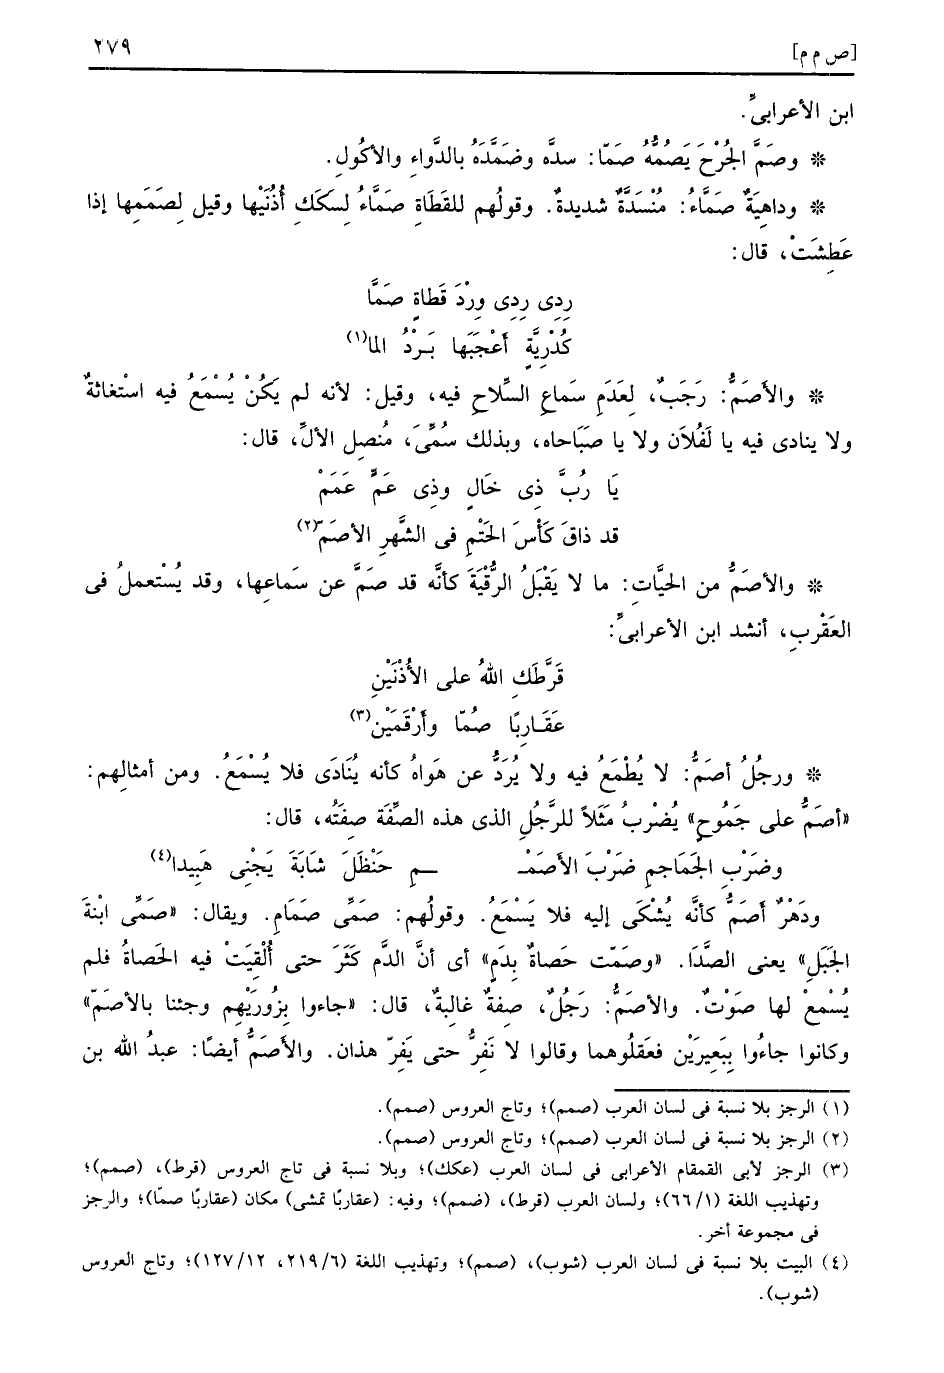 [ص م م] ٢٧٩
ابن الأعرابىِّ.
❊ وصَمَّ الجُرْحَ يَصُمُّهُ صَمّا: سدَّه وضَمَّدَهُ بالدَّواءِ والأكُولِ.
❊ وداهِيَةٌ صَمَّاءُ: مُنْسَدَّةٌ شديدةٌ. وقولُهم للقَطَاةِ صَمَّاءُ لِسكَكِ أُذُنَيْها وقيل لِصَمَمِها إذا
عَطِشَتْ، قال:
رِدِى رِدِى وِرْدَ قَطاةٍ صَمَّا
كُدْرِيَّةٍ أَعْجَبَها بَرْدُ الما(١)
❊ والأَصَمُّ: رَجَبٌ، لِعَدَمِ سَماعِ السِّلاحِ فيه، وقيل: لأنه لم يَكُنْ يُسْمَعُ فيه اسْتغاثةٌ
ولا ينادى فيه يا لَفُلاَن ولا يا صَبَاحاه، وبذلك سُمِّىَ، مُنصِل الألِّ، قال:
يَا رُبَّ ذِى خَالٍ وذِى عَمٍّ عَمَمْ
قد ذاقَ كَأْسَ الحَتْمِ فى الشَّهرِ الأصَمّ(٢)
❊ والأصَمُّ من الحيَّاتِ: ما لا يَقْبَلُ الرُّقْيَةَ كأنَّه قد صَمَّ عن سَماعِها، وقد يُسْتعملُ فى
العَقْربِ، أنشد ابن الأعرابىِّ:
قَرَّطَكِ اللهُ على الأُذْنَيْنِ
عَقَارِبًا صُمّا وأَرْقَمَيْن(٣)
❊ ورجُلُ أصَمُّ: لا يُطْمَعُ فيه ولا يُرَدُّ عن هَواهُ كأنه يُنَادَى فلا يُسْمَعُ. ومن أمثالِهم:
«أصَمُّ على جَمُوحٍ» يُضْربُ مَثَلاً للرَّجُلِ الذى هذه الصِّفَة صِفَتُه، قال:
وضَرْبِ الجَمَاجمِ ضَرْبَ الأَصَمْـ ـمِ حَنْظَلَ شَابَةَ يَجْنِى هَبِيدا(٤)
ودَهْرٌ أَصَمُّ كأنَّه يُشْكَى إليه فلا يَسْمَعُ. وقولُهم: صَمِّى صَمَامِ. ويقال: «صَمِّى ابْنةَ
الجَبَلِ» يعنى الصَّدَا. «وصَمّت حَصاةٌ بِدَمٍ» أى أنَّ الدَّم كَثَرَ حتى أُلْقِيَتْ فيه الحَصاةُ فلم
يُسْمعْ لها صَوْتٌ. والأصَمُّ: رَجُلٌ، صِفةٌ غالِبةٌ، قال: «جاءوا بِزُورَيْهِم وجئنا بالأصَمّ»
وكانوا جاءُوا بِبَعِيرَيْن فعَقلُوهما وقالوا لا نَفِرُّ حتى يَفِرّ هذان. والأصَمُّ أيضًا: عبدُ الله بن
(١) الرجز بلا نسبة فى لسان العرب (صمم)؛ وتاج العروس (صمم).
(٢) الرجز بلا نسبة فى لسان العرب (صمم)؛ وتاج العروس (صمم).
(٣) الرجز لأبى القمقام الأعرابى فى لسان العرب (عكك)؛ وبلا نسبة فى تاج العروس (قرط)، (صمم)؛
وتهذيب اللغة (٦٦/١)؛ ولسان العرب (قرط)، (ضمم)؛ وفيه: (عقاربًا تمشى) مكان (عقاربًا صمّا)؛ والرجز
فى مجموعة أخر.
(٤) البيت بلا نسبة فى لسان العرب (شوب)، (صمم)؛ وتهذيب اللغة (٢١٩/٦، ١٢٧/١٢)؛ وتاج العروس
(شوب).